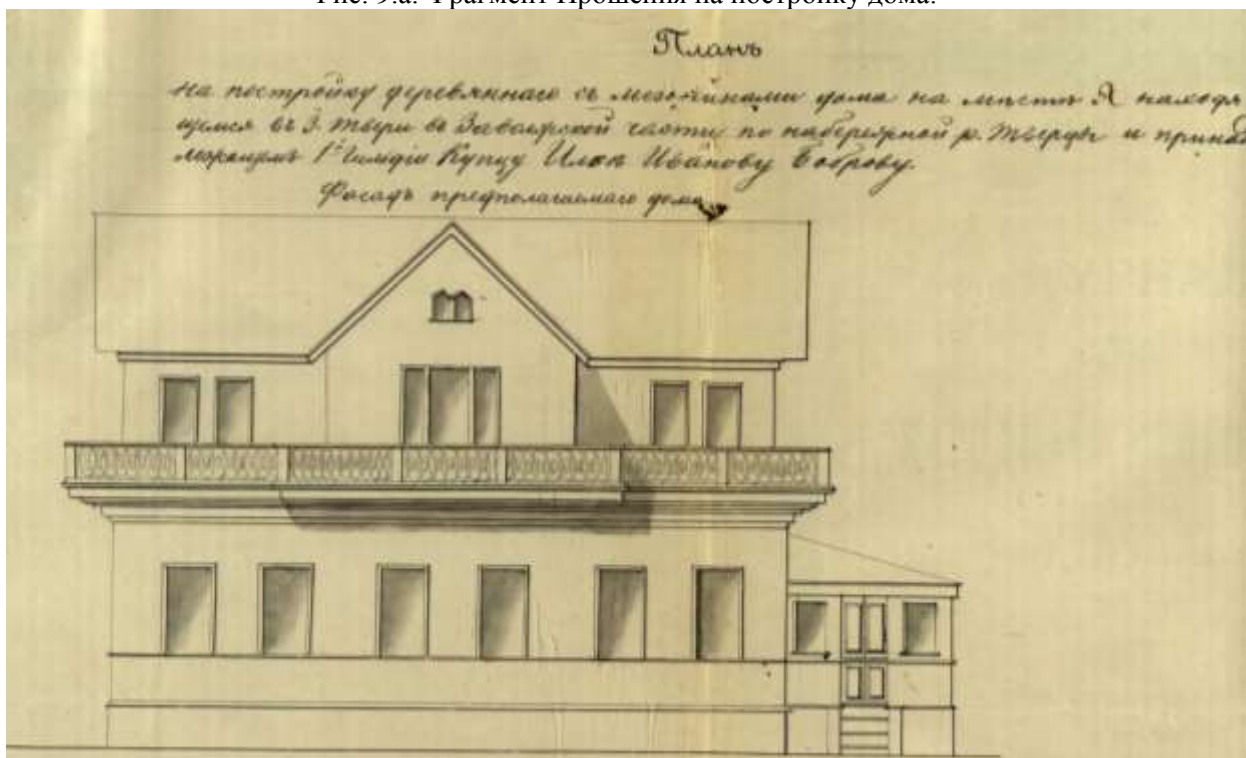 Рис. 9.а. Фрагмент Прошения на постройку дома.
Планъ
на постройку деревяннаго съ мезонинами дома на мѣстѣ Я находя
щемся въ Г. Твери въ Заволжской части по набережной р. Тверцы и принад
лежащемъ 1й Гильдіи Купцу Ильѣ Иванову Боброву.
Фасадъ предполагаемаго дома